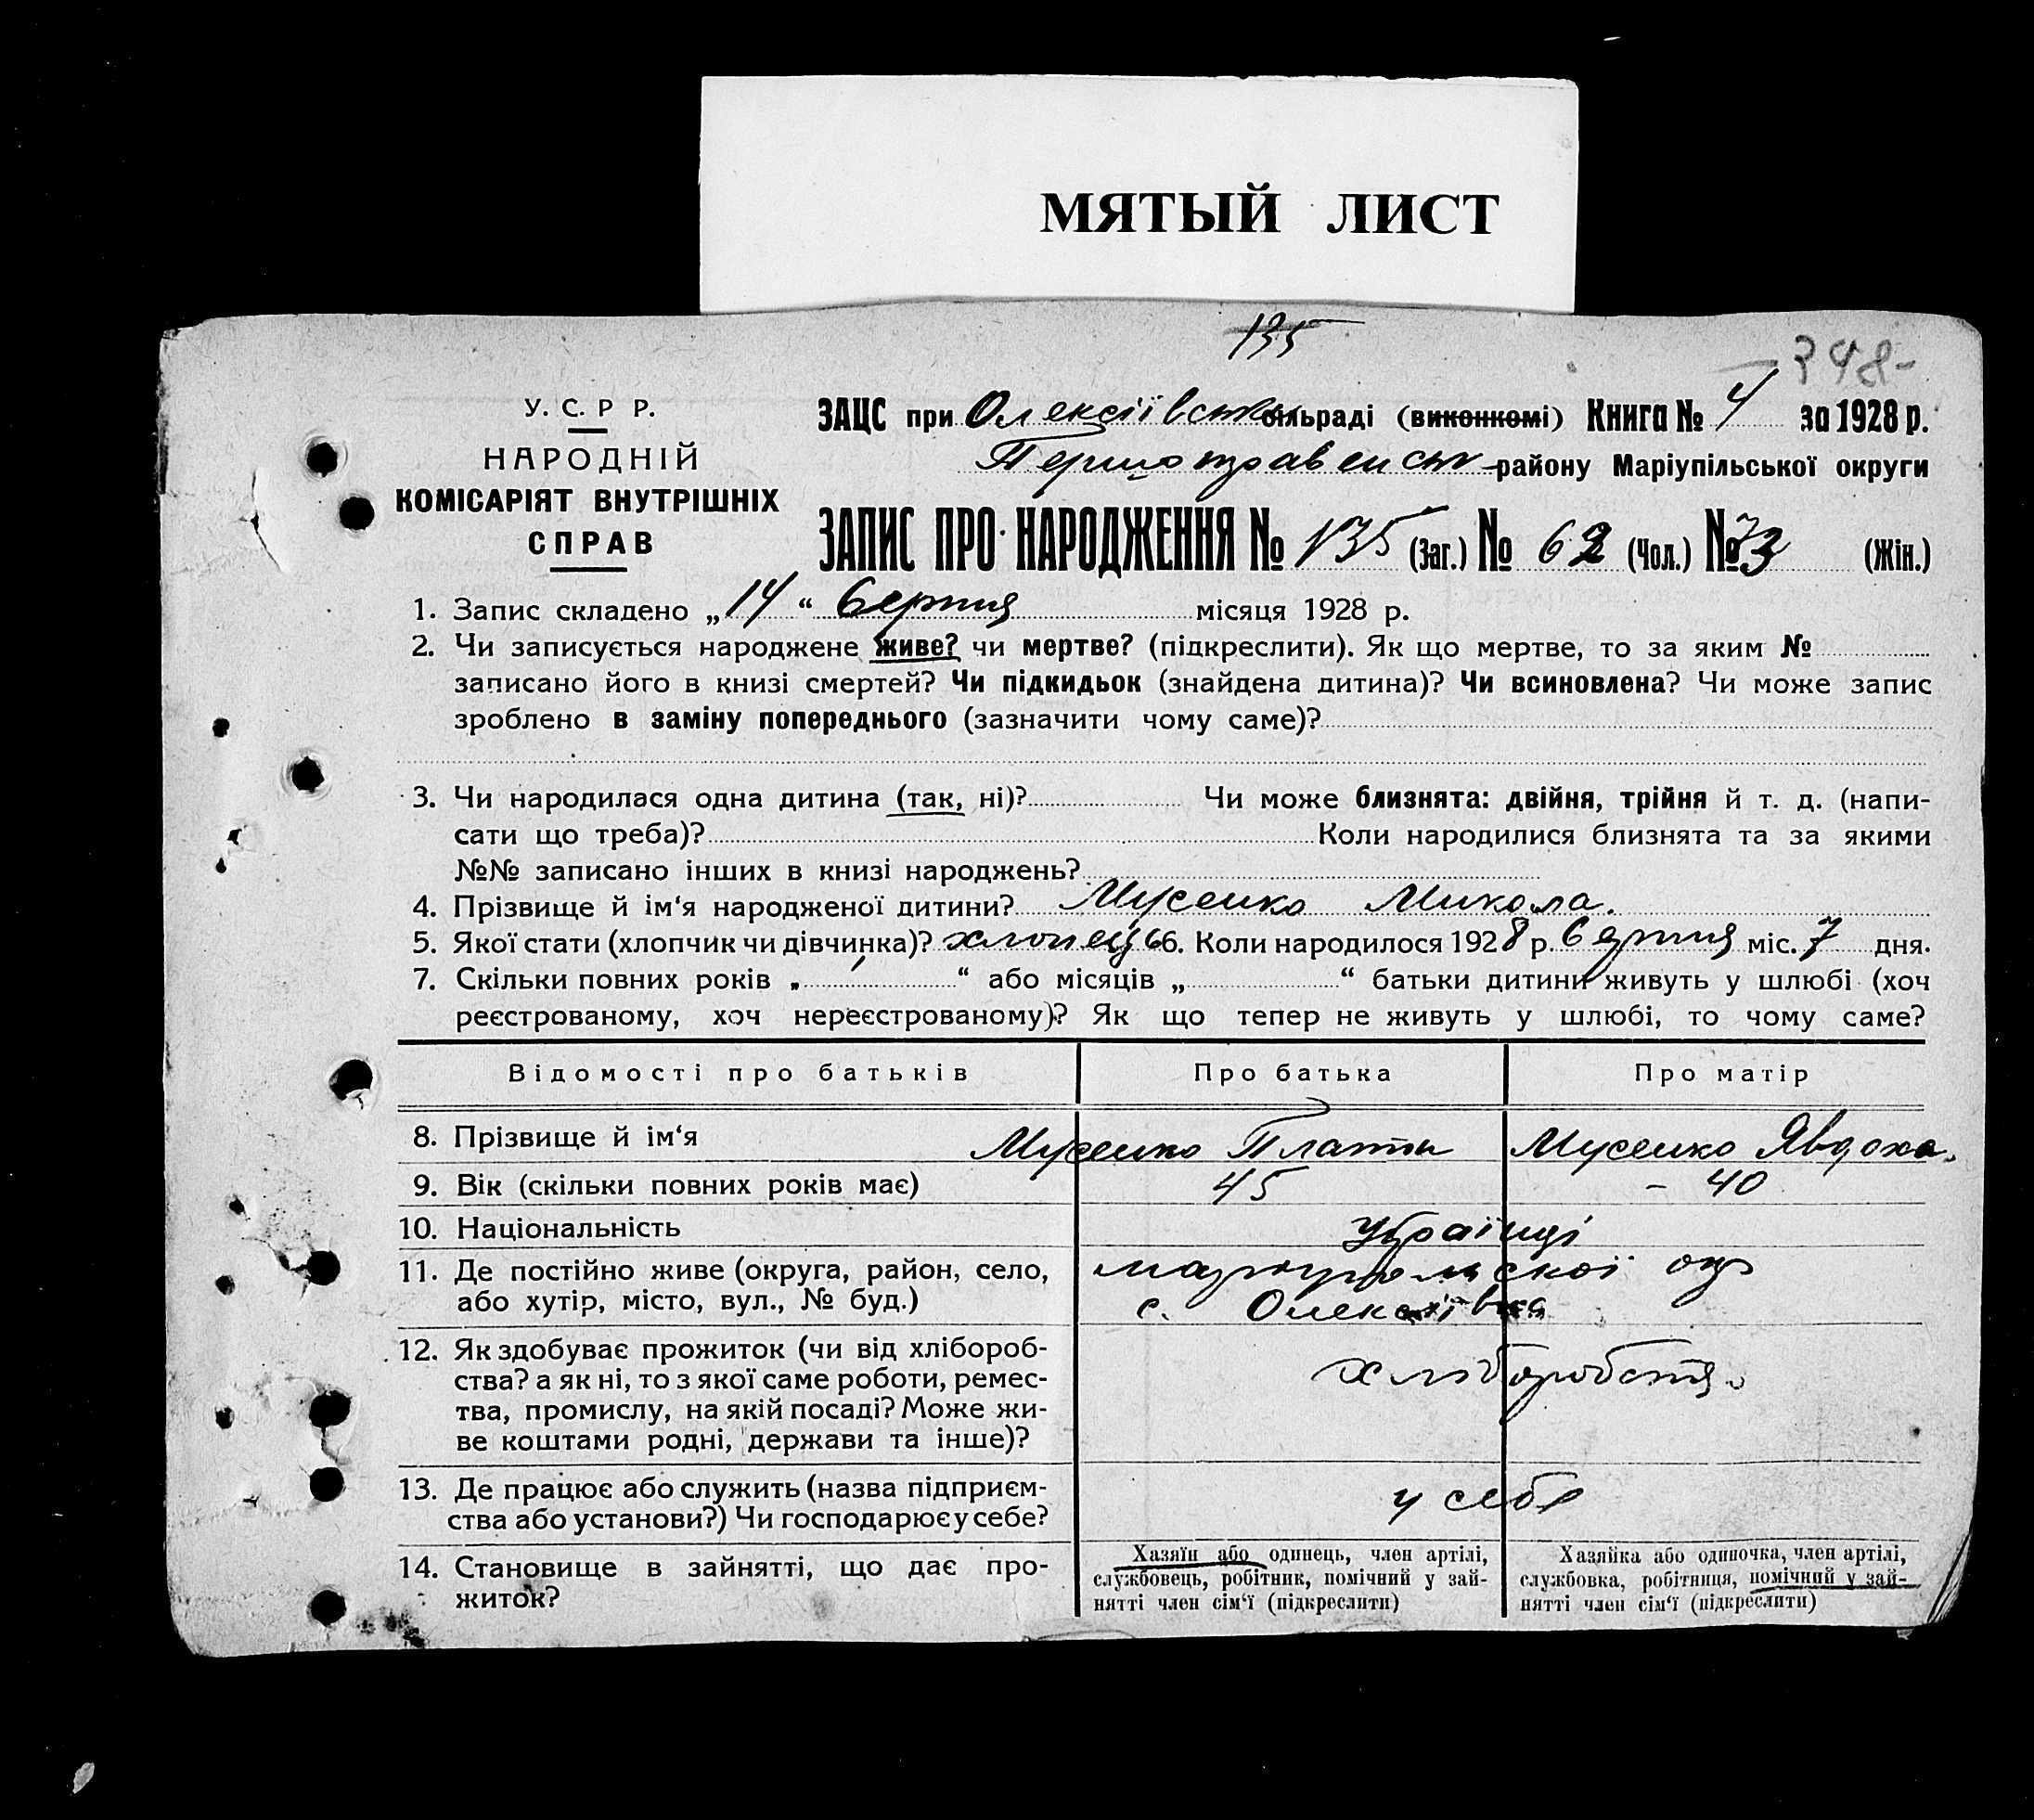 МЯТЫЙ ЛИСТ
135
348-
У. С. Р Р.
НАРОДНІЙ
КОМІСАРІЯТ ВНУТРІШНІХ
СПРАВ
ЗАЦС при Олексіївськ сільраді (виконкомі) Книга № 4 за 1928 р.
Першотравенськ району Маріупільської округи
ЗАПИС ПРО НАРОДЖЕННЯ № 135 (Заг.) № 62 (Чол.) № 73 (Жін.)
1. Запис складено „14“ Серпня місяця 1928 р.
2. Чи записується народжене живе? чи мертве? (підкреслити). Як що мертве, то за яким №
записано його в книзі смертей? Чи підкидьок (знайдена дитина)? Чи всиновлена? Чи може запис
зроблено в заміну попереднього (зазначити чому саме)?
3. Чи народилася одна дитина (так, ні)? Чи може близнята: двійня, трійня й т. д. (напи-
сати що треба)? Коли народилися близнята та за якими
№№ записано інших в книзі народжень?
4. Прізвище й ім‘я народженої дитини? Мусенко Микола.
5. Якої стати (хлопчик чи дівчинка)? хлопець 6. Коли народилося 1928 р. Серпня міс. 7 дня.
7. Скільки повних років „ “ або місяців „ “ батьки дитини живуть у шлюбі (хоч
реєстрованому, хоч нереєстрованому)? Як що тепер не живуть у шлюбі, то чому саме?
Відомості про батьків Про батька Про матір
8. Прізвище й ім‘я Мусенко Платон Мусенко Явдоха.
9. Вік (скільки повних років має) 45 - 40
10. Національність Українці
11. Де постійно живе (округа, район, село, Маріупольскої окр
або хутір, місто, вул., № буд.) с. Олексіївка
12. Як здобуває прожиток (чи від хлібороб-
ства? а як ні, то з якої саме роботи, ремес-
тва, промислу, на якій посаді? Може жи-
ве коштами родні, держави та інше)?
13. Де працює або служить (назва підприєм-
ства або установи?) Чи господарює у себе? у себе
14. Становище в зайнятті, що дає про-
житок?
Хазяїн або одинець, член артілі,
службовець, робітник, помічний у зай-
нятті член сім‘ї (підкреслити)
Хазяйка або одиночка, член артілі,
службовка, робітниця, помічний у зай-
нятті член сім‘ї (підкреслити)